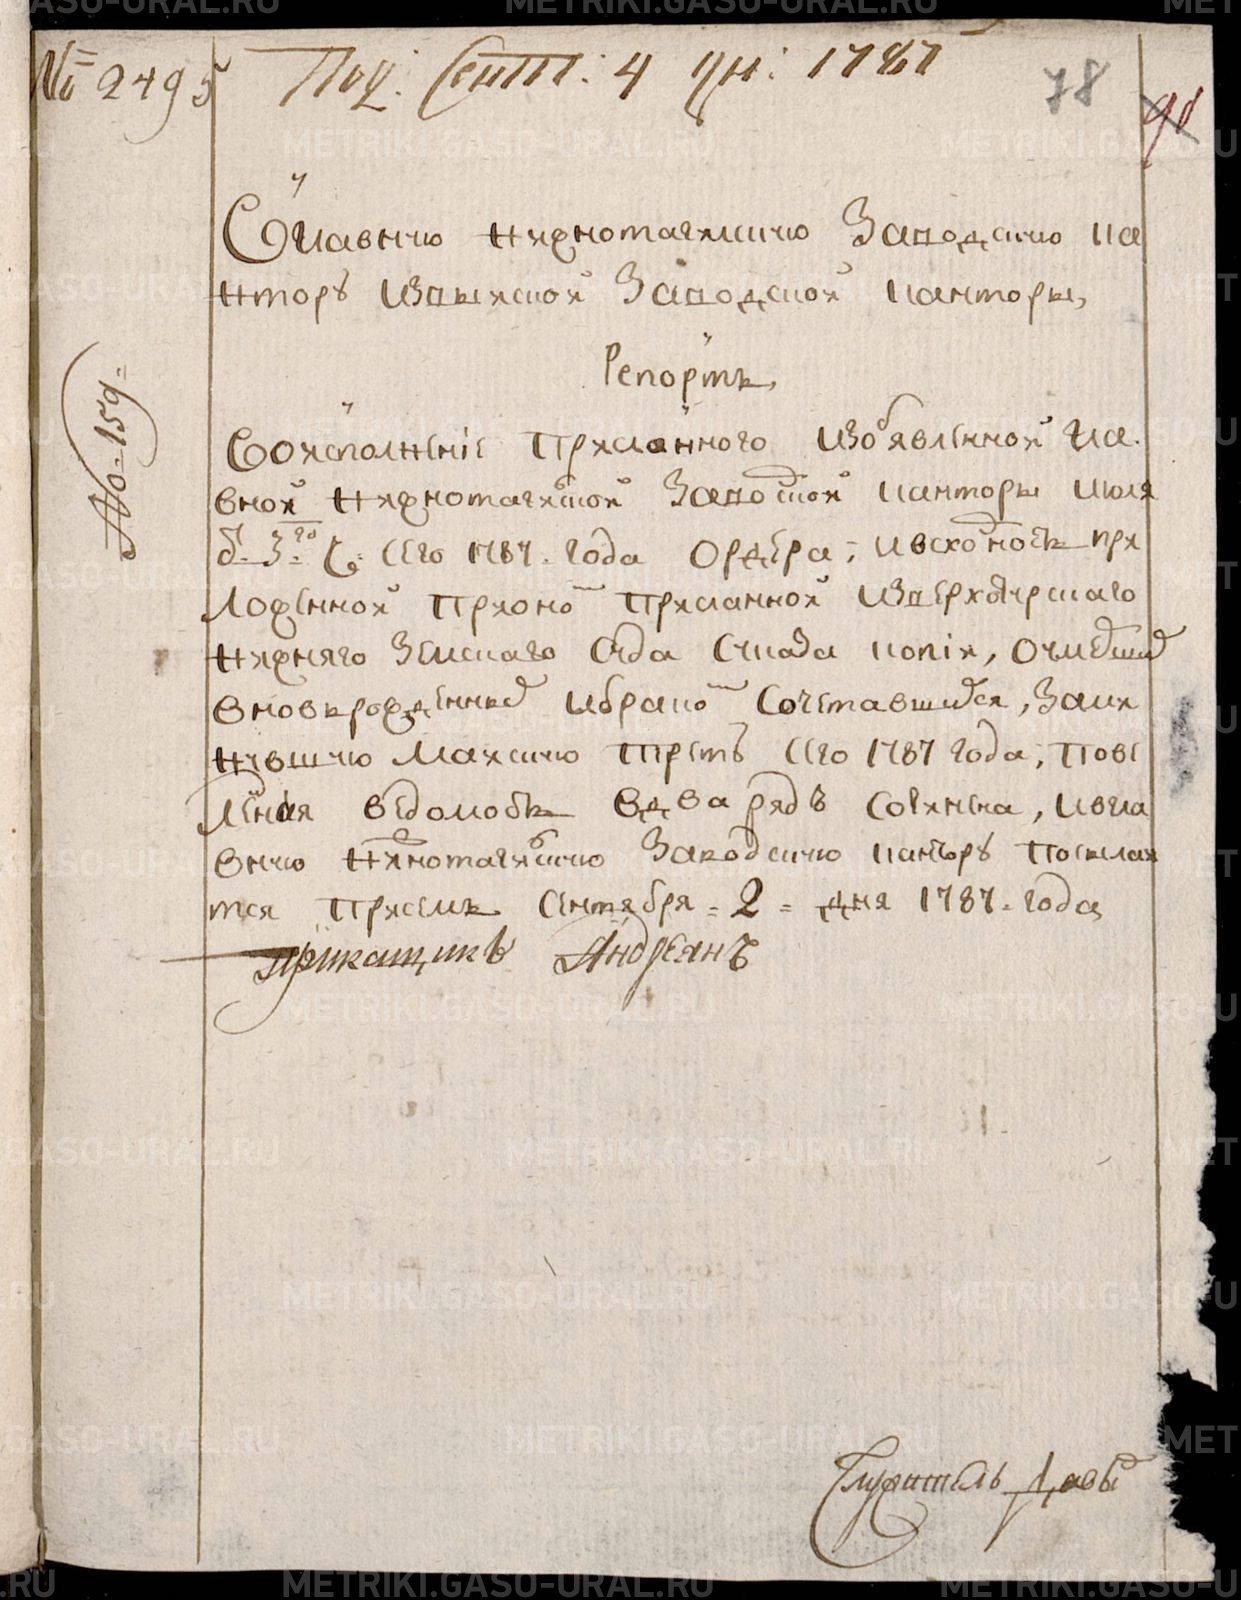 № 2495
Пол: Сент: 4 дн: 1787
78
91
№ 159
Главную Нижнотагилскую Заводскую ка
нтору Извыйской Заводской канторы,
Репортъ
Воисполнение присланного изобявленной Гла
вной Нижнотагилской Заводской канторы июля
сего 1787 года ордера, и всходность при
ложенной приномъ присланной из
Нижняго Земскаго Суда Указа копии, о умерших
вновьрожденных и браком сочетавшихся, за
майскую треть сего 1787 года, пове
ленная ведомость вдва ряд сочинена, и вгла
вную Нижнотагилскую Заводскую кантору посылае
тся присемъ Сентября 2 дня 1787 года
прикащикъ Андреянъ
Служитель Давы
METRIKI.GASO-URAL.RU